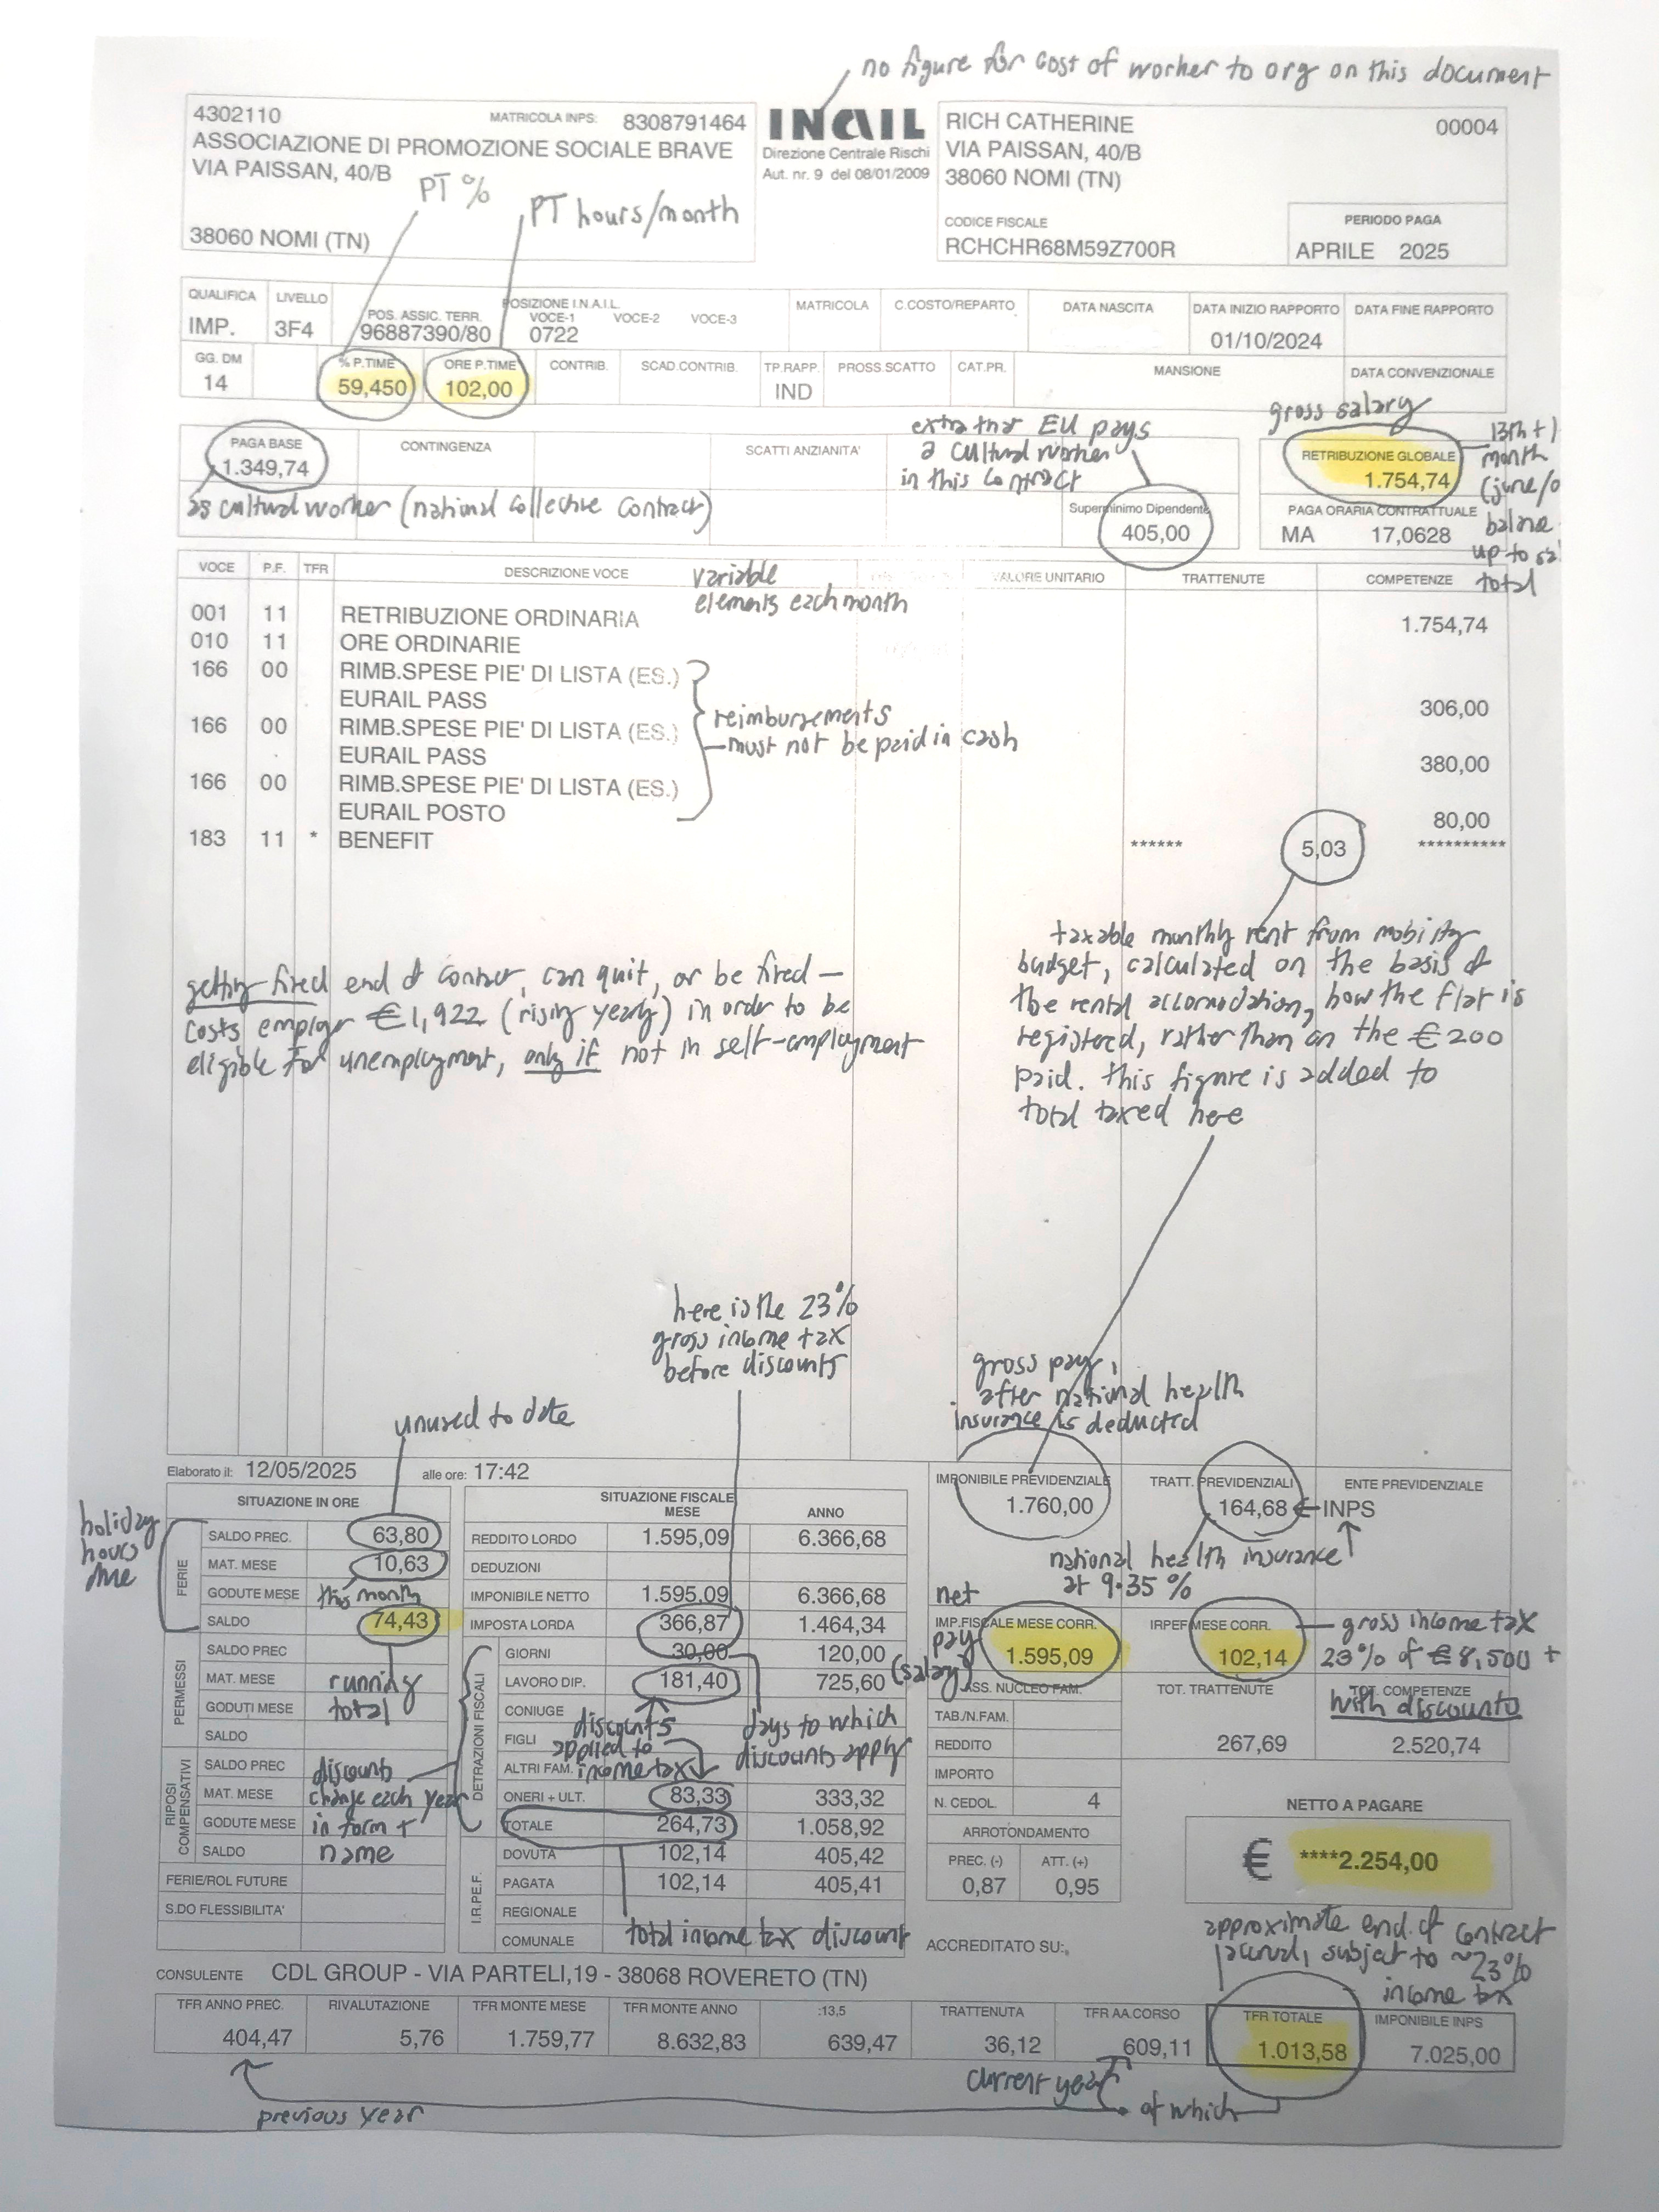 no figure for cost of worker to org on this document
4302110 MATRICOLA INPS: 8308791464
ASSOCIAZIONE DI PROMOZIONE SOCIALE BRAVE
VIA PAISSAN, 40/B
38060 NOMI (TN)
PT %
PT hours/month
INAIL
Direzione Centrale Rischi
Aut. nr. 9 del 08/01/2009
RICH CATHERINE 00004
VIA PAISSAN, 40/B
38060 NOMI (TN)
CODICE FISCALE
RCHCHR68M59Z700R
PERIODO PAGA
APRILE 2025
QUALIFICA LIVELLO POS. ASSIC. TERR. POSIZIONE I.N.A.I.L. VOCE-1 VOCE-2 VOCE-3 MATRICOLA C.COSTO/REPARTO DATA NASCITA DATA INIZIO RAPPORTO DATA FINE RAPPORTO
IMP. 3F4 96887390/80 0722 01/10/2024
GG. DM % P.TIME ORE P.TIME CONTRIB. SCAD.CONTRIB. TP.RAPP. PROSS.SCATTO CAT.PR. MANSIONE DATA CONVENZIONALE
14 59,450 102,00 IND
PAGA BASE CONTINGENZA SCATTI ANZIANITA'
1.349,74
as cultural worker (national collective contract)
extra that EU pays
a cultural worker
in this contract
Superminimo Dipendente
405,00
gross salary
RETRIBUZIONE GLOBALE
1.754,74
PAGA ORARIA CONTRATTUALE
MA 17,0628
13th +
month
(june/
balance
up to
total
VOCE P.F. TFR DESCRIZIONE VOCE VALORE UNITARIO TRATTENUTE COMPETENZE
variable
elements each month
001 11 RETRIBUZIONE ORDINARIA 1.754,74
010 11 ORE ORDINARIE
166 00 RIMB.SPESE PIE' DI LISTA (ES.)
EURAIL PASS 306,00
166 00 RIMB.SPESE PIE' DI LISTA (ES.)
EURAIL PASS 380,00
166 00 RIMB.SPESE PIE' DI LISTA (ES.)
EURAIL POSTO 80,00
183 11 * BENEFIT ****** 5,03 **********
reimbursements
- must not be paid in cash
getting fired end of contract, can quit, or be fired –
costs employer €1,922 (rising yearly) in order to be
eligible for unemployment, only if not in self-employment
taxable monthly rent from mobility
budget, calculated on the basis of
the rental accomodation, how the flat is
registered, rather than on the €200
paid. this figure is added to
total taxed here
here is the 23%
gross income tax
before discounts
unused to date
gross pay,
after national health
insurance is deducted
Elaborato il: 12/05/2025 alle ore: 17:42
holiday
hours
due
SITUAZIONE IN ORE
FERIE
SALDO PREC. 63,80
MAT. MESE 10,63
GODUTE MESE this month
SALDO 74,43
PERMESSI
SALDO PREC
MAT. MESE
GODUTI MESE
SALDO
running
total
RIPOSI COMPENSATIVI
SALDO PREC
MAT. MESE
GODUTE MESE
SALDO
discounts
change each year
in form +
name
FERIE/ROL FUTURE
S.DO FLESSIBILITA'
SITUAZIONE FISCALE
MESE ANNO
REDDITO LORDO 1.595,09 6.366,68
DEDUZIONI
IMPONIBILE NETTO 1.595,09 6.366,68
IMPOSTA LORDA 366,87 1.464,34
DETRAZIONI FISCALI
GIORNI 30,00 120,00
LAVORO DIP. 181,40 725,60
CONIUGE
FIGLI
ALTRI FAM.
ONERI + ULT. 83,33 333,32
TOTALE 264,73 1.058,92
discounts
applied to
income tax
days to which
discounts apply
I.R.PE.F.
DOVUTA 102,14 405,42
PAGATA 102,14 405,41
REGIONALE
COMUNALE
total income tax discount
IMPONIBILE PREVIDENZIALE TRATT. PREVIDENZIALI ENTE PREVIDENZIALE
1.760,00 164,68 INPS
national health insurance
at 9.35 %
net
pay
(salary)
IMP.FISCALE MESE CORR. IRPEF MESE CORR.
1.595,09 102,14
gross income tax
23% of €8,500 +
with discounts
ASS. NUCLEO FAM. TOT. TRATTENUTE TOT. COMPETENZE
TAB./N.FAM.
REDDITO 267,69 2.520,74
IMPORTO
N. CEDOL. 4
ARROTONDAMENTO
PREC. (-) ATT. (+)
0,87 0,95
NETTO A PAGARE
€ ****2.254,00
ACCREDITATO SU:
approximate end of contract
accrual, subject to ~23%
income tax
CONSULENTE CDL GROUP - VIA PARTELI,19 - 38068 ROVERETO (TN)
TFR ANNO PREC. RIVALUTAZIONE TFR MONTE MESE TFR MONTE ANNO :13,5 TRATTENUTA TFR AA.CORSO TFR TOTALE IMPONIBILE INPS
404,47 5,76 1.759,77 8.632,83 639,47 36,12 609,11 1.013,58 7.025,00
previous year
current year
of which